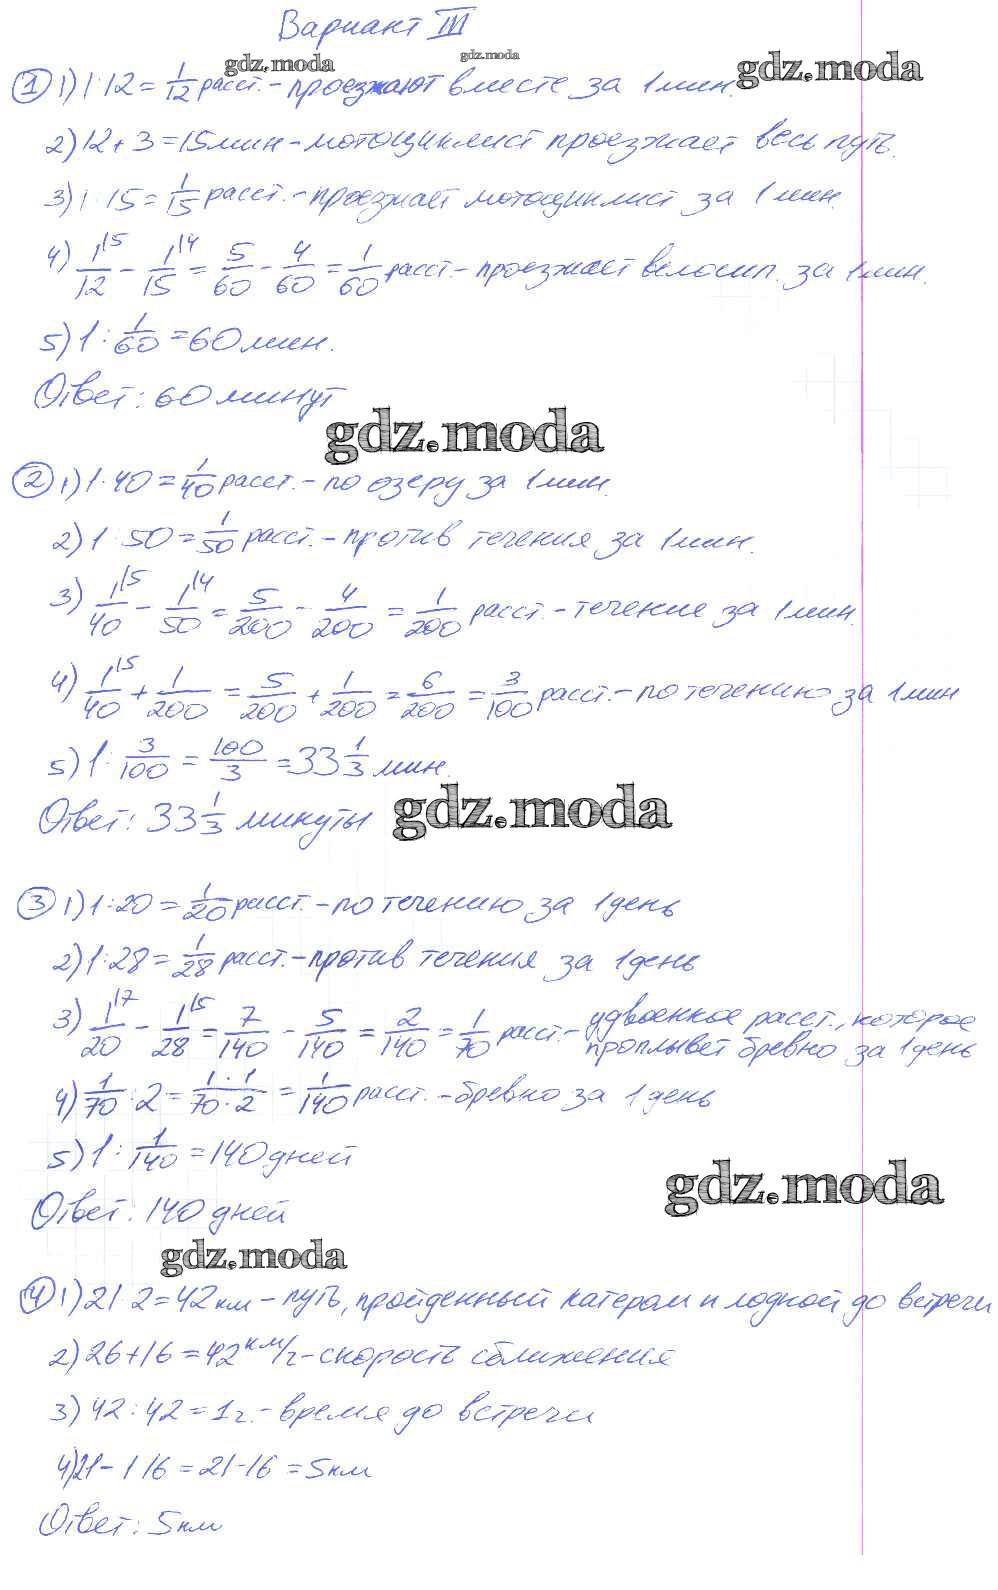 Вариант III
gdz.moda gdz.moda gdz.moda
① 1) 1:12 = 1/12 расст. – проезжают вместе за 1 мин.
2) 12 + 3 = 15 мин – мотоциклист проезжает весь путь.
3) 1:15 = 1/15 расст. – проезжает мотоциклист за 1 мин.
4) 1/12 |5 – 1/15 |4 = 5/60 – 4/60 = 1/60 расст. – проезжает велосип. за 1 мин.
5) 1 : 1/60 = 60 мин.
Ответ: 60 минут
gdz.moda
② 1) 1:40 = 1/40 расст. – по озеру за 1 мин.
2) 1:50 = 1/50 расст. – против течения за 1 мин.
3) 1/40 |5 – 1/50 |4 = 5/200 – 4/200 = 1/200 расст. – течение за 1 мин.
4) 1/40 |5 + 1/200 = 5/200 + 1/200 = 6/200 = 3/100 расст. – по течению за 1 мин
5) 1 : 3/100 = 100/3 = 33 1/3 мин.
Ответ: 33 1/3 минуты
gdz.moda
③ 1) 1:20 = 1/20 расст. – по течению за 1 день
2) 1:28 = 1/28 расст. – против течения за 1 день
3) 1/20 |7 – 1/28 |5 = 7/140 – 5/140 = 2/140 = 1/70 расст. – удвоенное расст., которое
проплывёт бревно за 1 день
4) 1/70 : 2 = 1·1/70·2 = 1/140 расст. – бревно за 1 день
5) 1 : 1/140 = 140 дней
gdz.moda
Ответ: 140 дней
gdz.moda
④ 1) 21·2 = 42 км – путь, пройденный катером и лодкой до встречи
2) 26 + 16 = 42 км/ч – скорость сближения
3) 42 : 42 = 1 ч. – время до встречи
4) 21 – 1·16 = 21 – 16 = 5 км
Ответ: 5 км